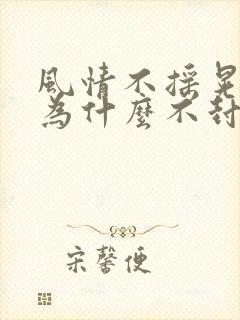 風情不搖晃
為什麼不封
宋馨便